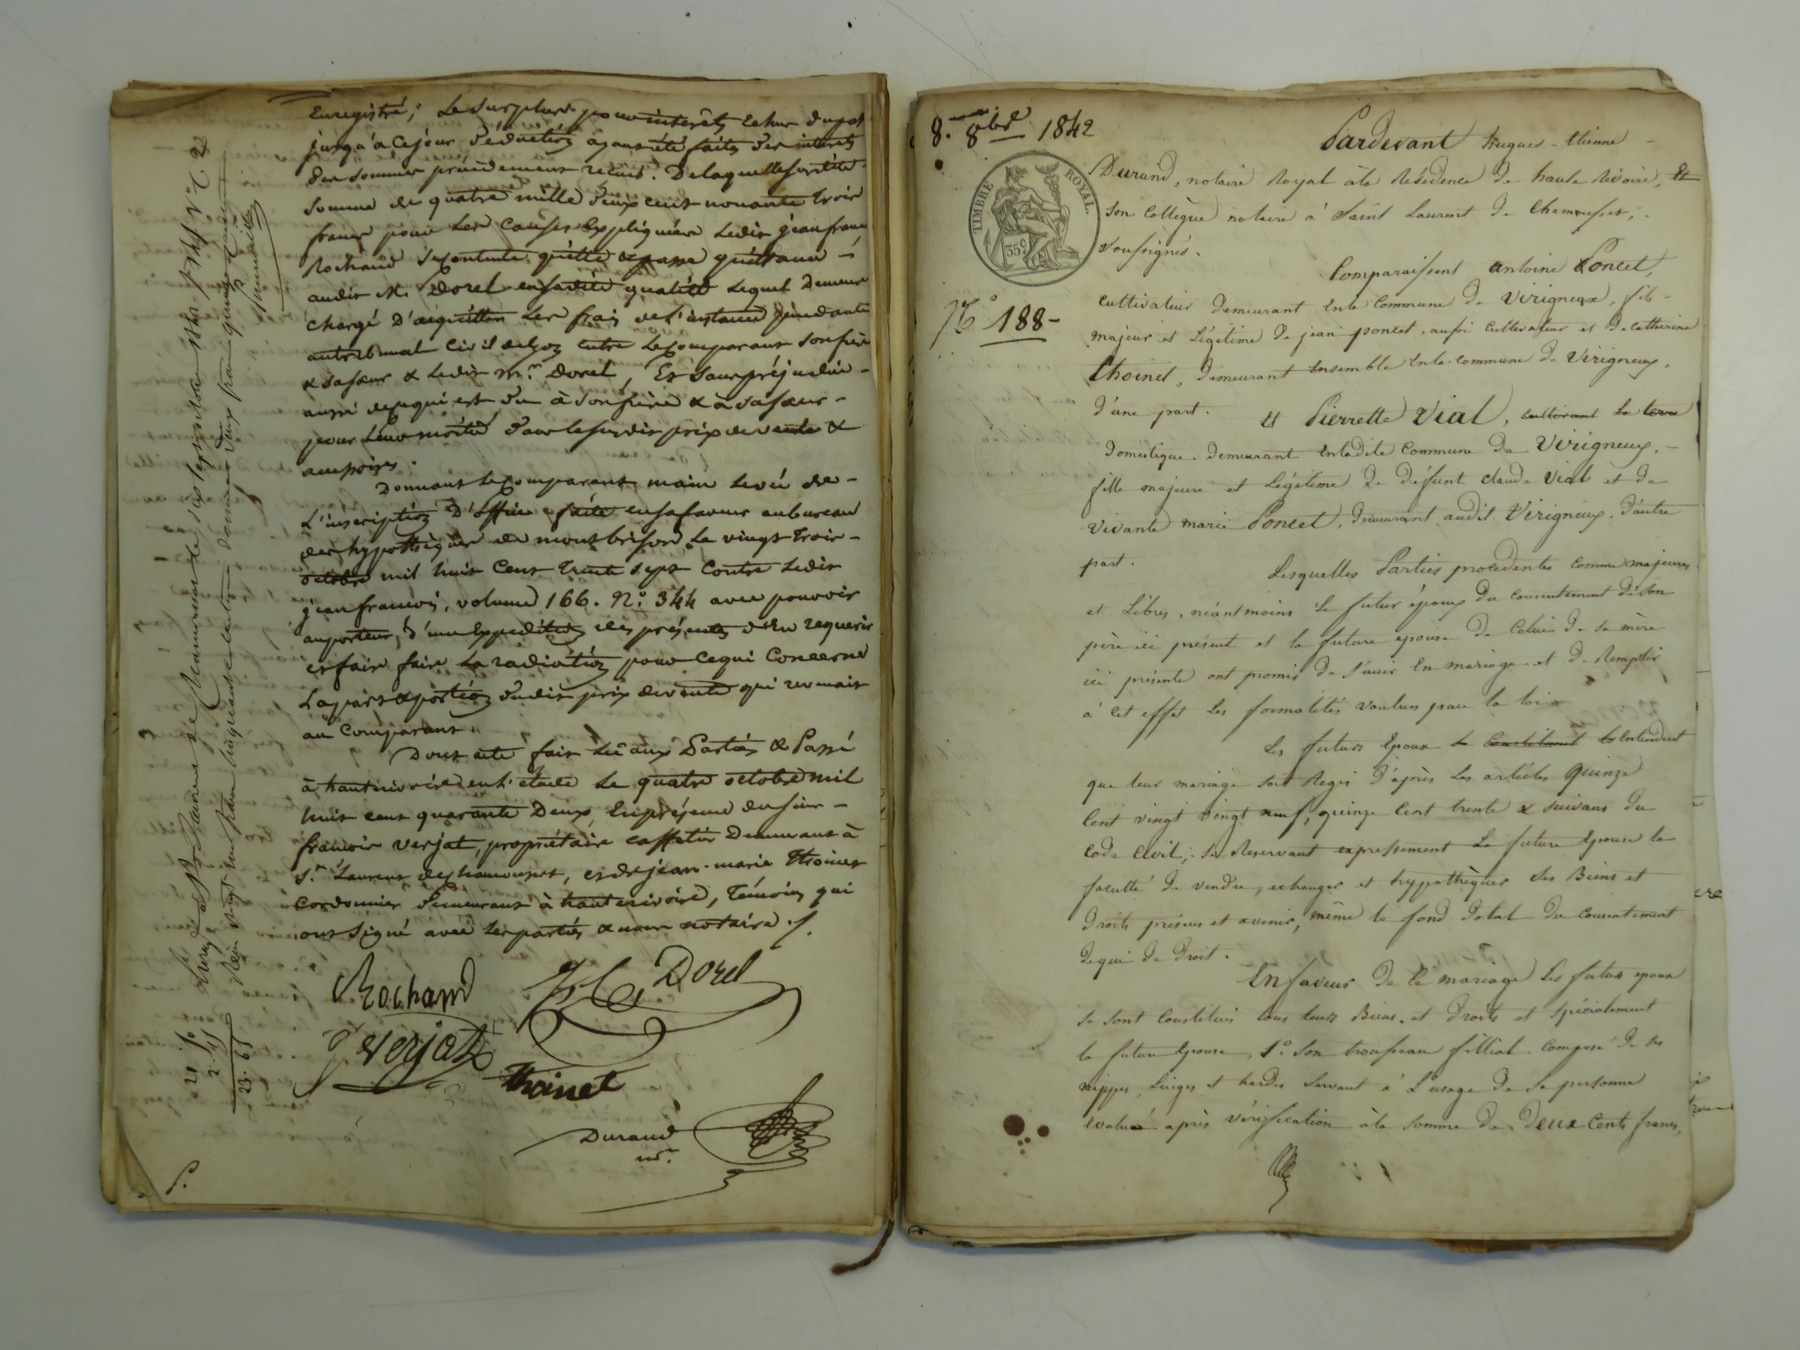 Enregistré; Le surplus pour intérêts Echus du passé
jusqu'à ce jour déduction ayant été faite des intérêts
des sommes précédemment recues. De laquelle susdite
Somme de quatre mille deux cent nonante trois
francs pour les Causes Expliquées Ledit jean francois
Rochand se contente, quitte & passe quittance
audit Me Dorel ensadite qualité Lequel Demeure
chargé D'acquitter Les frais de l'instance pendante
au tribunal Civil de Lyon entre Le comparant son frère
& sa sœur & Ledit mr. Dorel, Et sans préjudice
aussi de ce qui est du à son frère & à sa sœur
pour Leur moitié dans le susdit prix de vente &
accessoires.
Donnant Le Comparant main Levée de
L'inscription D'office faite en sa faveur au bureau
des hypothèques de montbrison, Le vingt trois
octobre mil huit Cent trente sept Contre Ledit
jean francois, volume 166. N° 344 avec pouvoir
au porteur D'une Expédition des présentes d'En requerir
et faire faire La radiation pour Ce qui Concerne
La part & portion dudit prix de vente qui revenait
au Comparant.
Dont acte fait Lu aux Parties & Passé
à hauterivoire en L'étude Le quatre octobre mil
huit cent quarante Deux, En présence du sieur
francois verjat, propriétaire caffetier Demeurant à
St. Laurent de chamousset, et de jean-marie thoinet
Cordonnier Demeurant à hauterivoire, Témoins qui
ont Signé avec Les parties & nous notaire ./.
Rochand Dorel
verjat
thoinet
Durand
nre.
21. 50
2. 15
23. 65
8. 8bre 1842
TIMBRE ROYAL.
35c
N° 188-
Pardevant hugues-Etienne
Durand, notaire Royal à la Résidence de haute Rivoire, Et
Son Collègue notaire à Saint Laurent de Chamousset,
Soussignés.
Comparaissent antoine Poncet,
cultivateur demeurant En la Commune de Virigneux, fils
majeur et Légitime de jean poncet, aussi cultivateur et de catherine
Thoinet, demeurant Ensemble En la commune de Virigneux,
d'une part. Et Pierrette Vial, cultivant La terre
Domestique demeurant En ladite Commune de Virigneux,
fille majeure et Légitime de défunt claude Vial et de
Vivante marie Poncet, demeurant audit Virigneux, d'autre
part.
Lesquelles Parties procedantes comme majeures
et Libres, néantmoins le futur époux du consentement de son
père ici présent et la future epouse de Celui de sa mère
ici présente ont promis de s'unir En mariage et de Remplir
à Cet effet Les formalités voulues par la loi
Les futurs Epoux se Constituent Entendent
que leur mariage soit Regis d'après Les articles Quinze
Cent vingt vingt neuf, quinze Cent trente & suivans du
Code Civil; Se Reservant expressement La future Epouse la
faculté de vendre, echanger et hypothèquer ses Biens et
Droits présens et avenir, même le fond dotal du Consentement
de qui de Droit.
En faveur de Ce mariage Les futurs epoux
se sont Constitués tous leurs Biens et Droits et spécialement
la future Epouse, 1° Son trousseau fillial Composé de ses
nippes, Linges et hardes servant à L'usage de Sa personne
évalué après vérification à la Somme de Deux Cents francs,